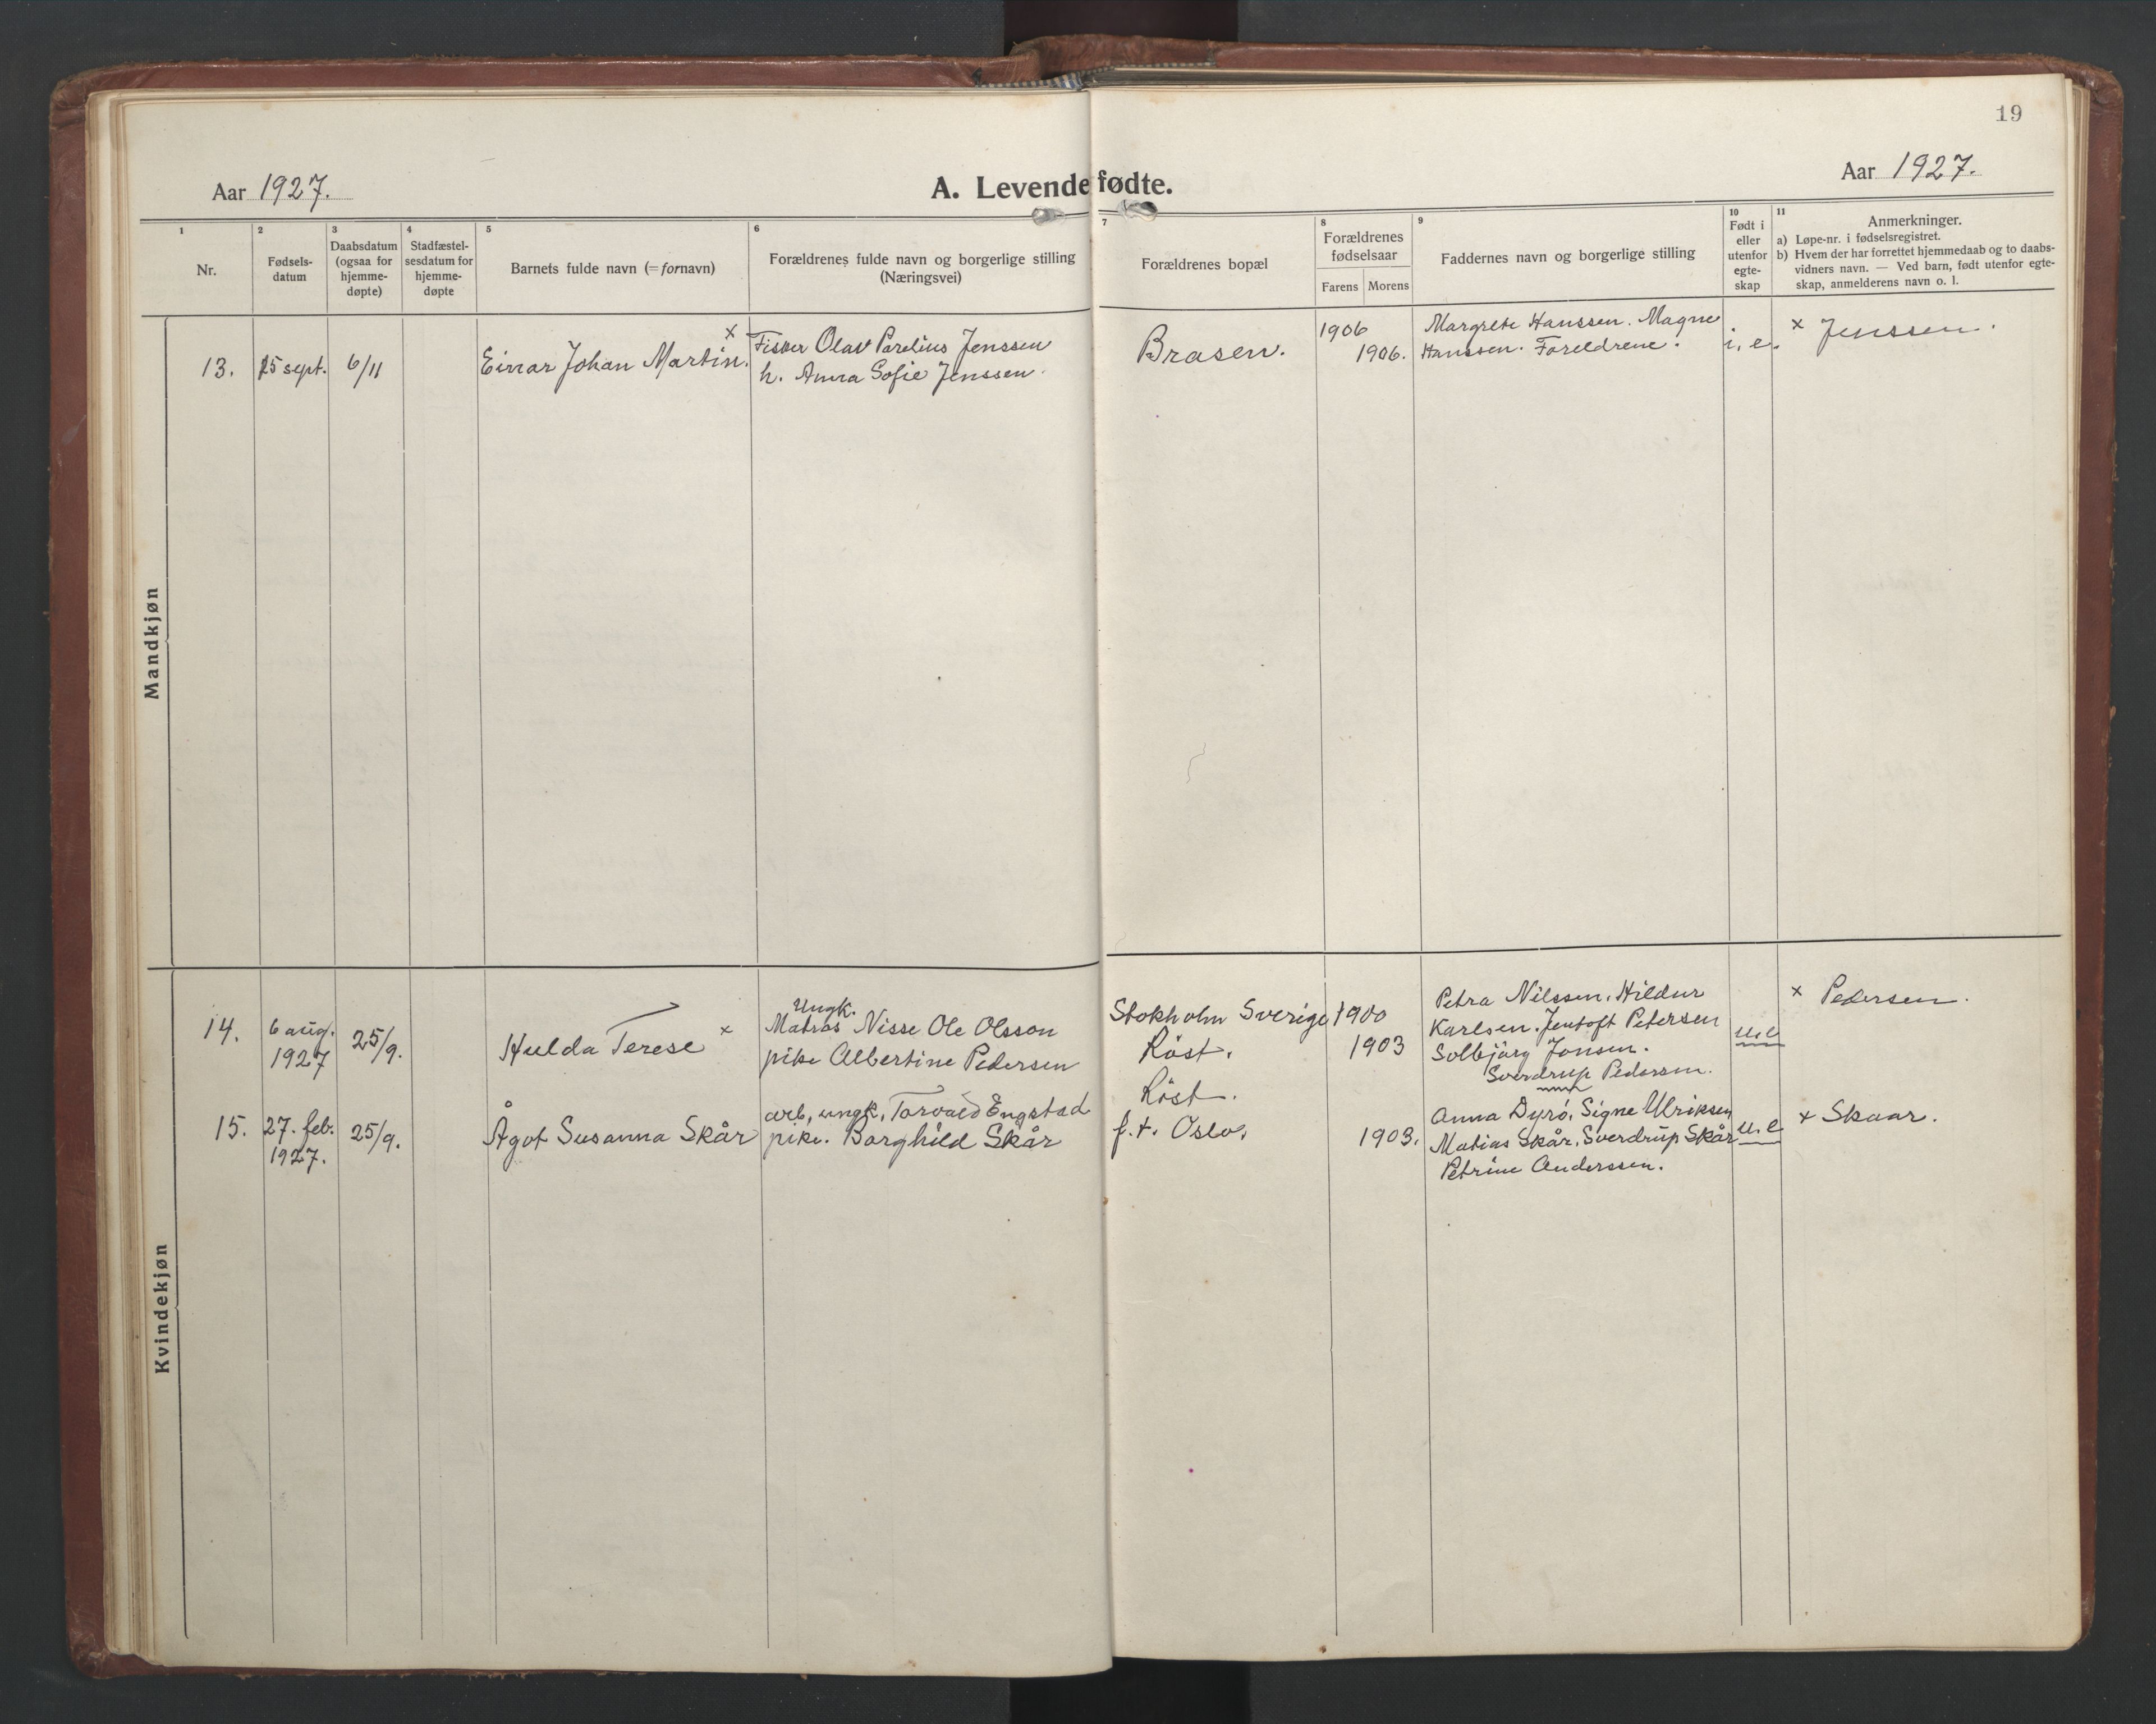 19
Aar 1927.
A. Levendefødte.
Aar 1927.
1 2 3 4 5 6 7 8 9 10 11
Nr.
Fødsels-
datum
Daabsdatum
(ogsaa for
hjemme-
døpte)
Stadfæstel-
sesdatum for
hjemme-
døpte
Barnets fulde navn (= fornavn)
Forældrenes fulde navn og borgerlige stilling
(Næringsvei)
Forældrenes bopæl
Forældrenes
fødselsaar
Farens Morens
Faddernes navn og borgerlige stilling
Født i
eller
utenfor
egte-
skap
Anmerkninger.
a) Løpe-nr. i fødselsregistret.
b) Hvem der har forrettet hjemmedaab og to daabs-
vidners navn. — Ved barn, født utenfor egte-
skap, anmelderens navn o. l.
Mandkjøn
13. 15 sept. 6/11
Einar Johan Martin. x
Fisker Olav Parelius Jenssen
h. Anna Sofie Jenssen.
Brasen.
1906
1906.
Margrete Hanssen. Magne
Hanssen. Foreldrene.
i. e.
x Jenssen.
Kvindekjøn
14. 6 aug.
1927
25/9.
Hulda Terese x
Ungk.
Matros Nisse Ole Olsson
pike Albertine Pedersen
Stokholm Sverige
Röst.
1900
1903
Petra Nilssen. Hildur
Karlsen. Jentoft Petersen
Solbjärg Jonsen.
Sverdrup Pedersen.
u.e
x Pedersen.
15. 27. feb.
1927.
25/9.
Ågot Susanna Skår
arb, ungk. Torvald Engstad
pike. Borghild Skår
Röst.
f. t. Oslo.
1903.
Anna Dyrö. Signe Ulriksen
Matias Skår. Sverdrup Skår
Petrine Anderssen.
u. e
x Skaar.